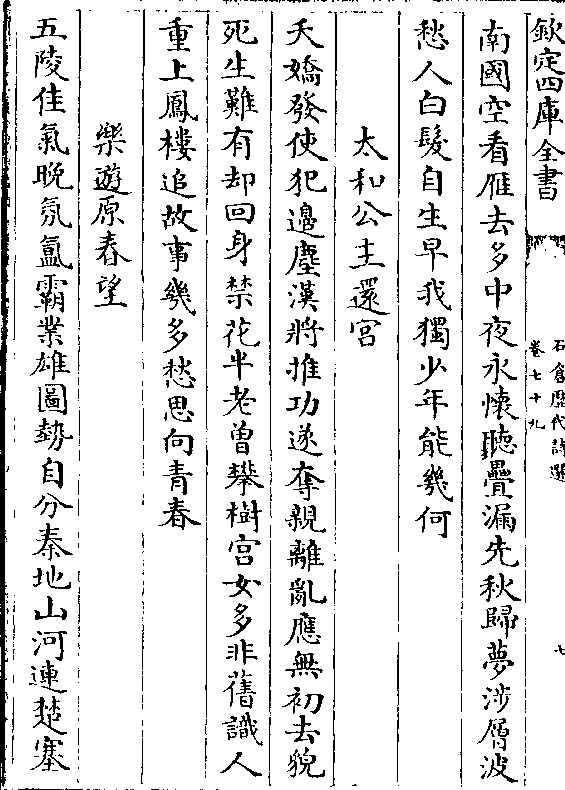 欽定四庫全書
石倉歴代詩選
卷七十九
七
南國空看雁去多中夜永懷聽疊漏先秋歸夢涉層波
愁人白髮自生早我獨少年能幾何
太和公主還宮
天嬌發使犯邊塵漢將推功遂奪親離亂應無初去貌
死生難有却回身禁花半老曾攀樹宮女多非舊識人
重上鳳樓追故事幾多愁思向青春
樂遊原春望
五陵佳氣晚氛氲霸業雄圖勢自分秦地山河連楚塞